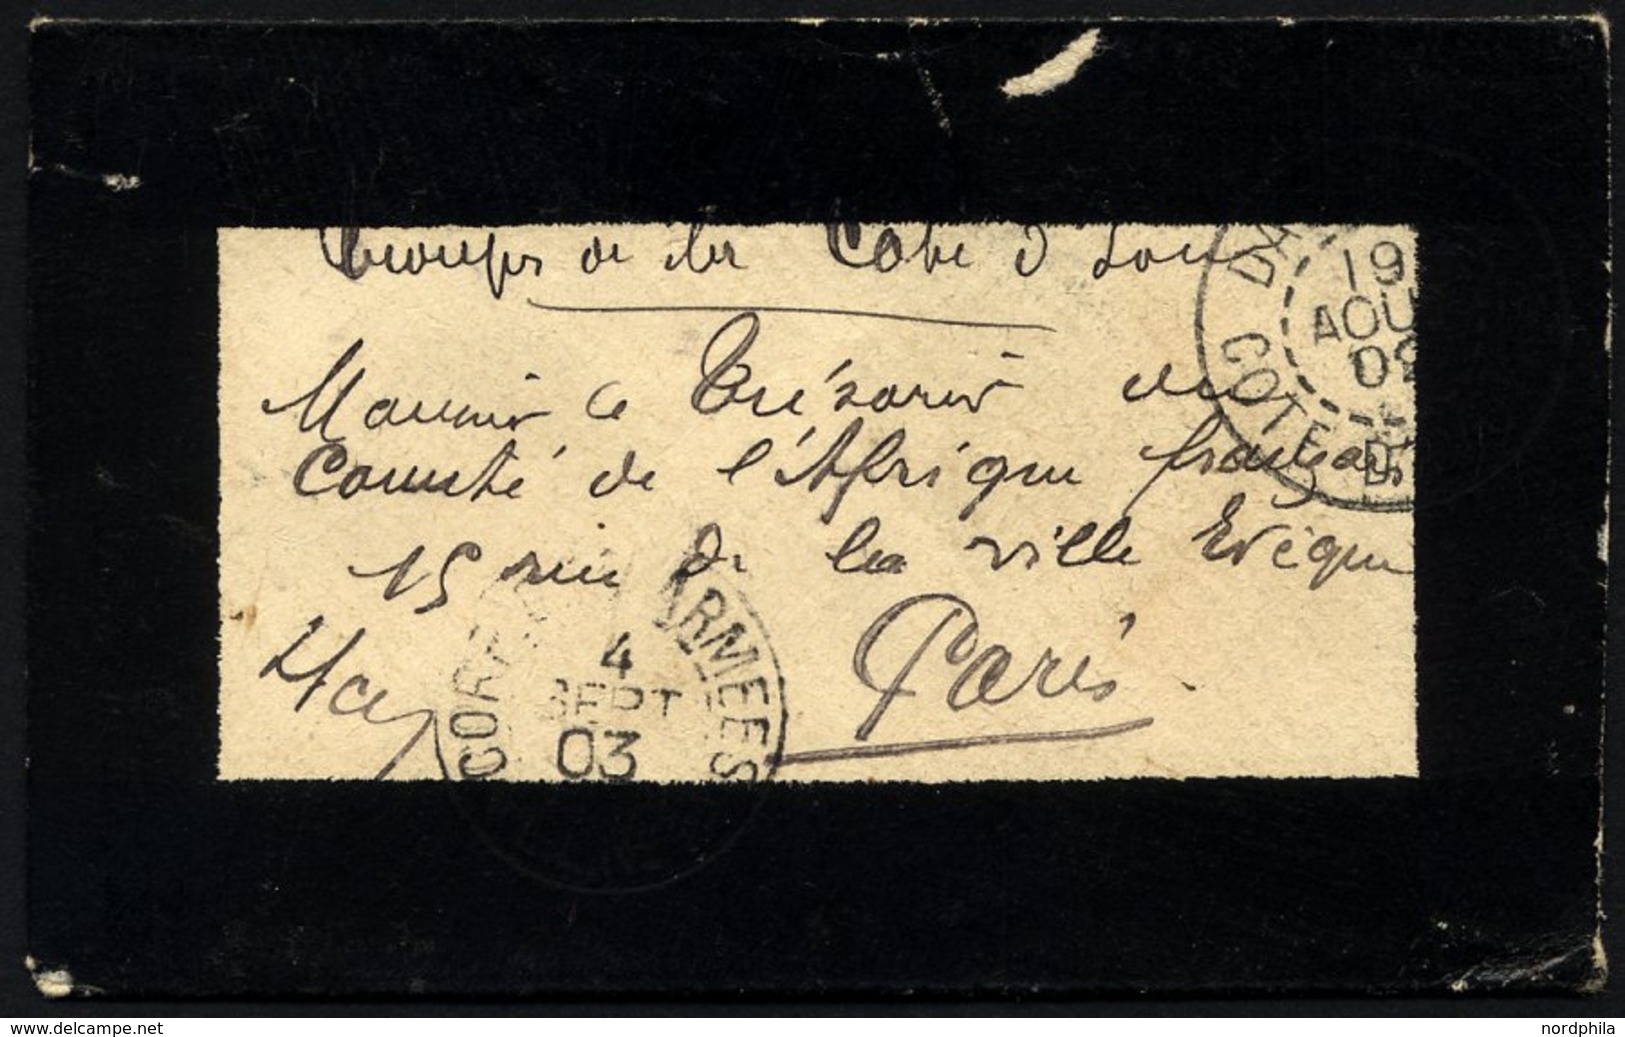 Troupes de la Côte d'Ivoi
Monsieur le Trésorier du
Comité de l'Afrique française
15 rue de la ville Evêque
Paris
DA
19
AOU
COTE D'I
CORR ARMEES
4
SEPT
03
www.delcampe.net
nordphila